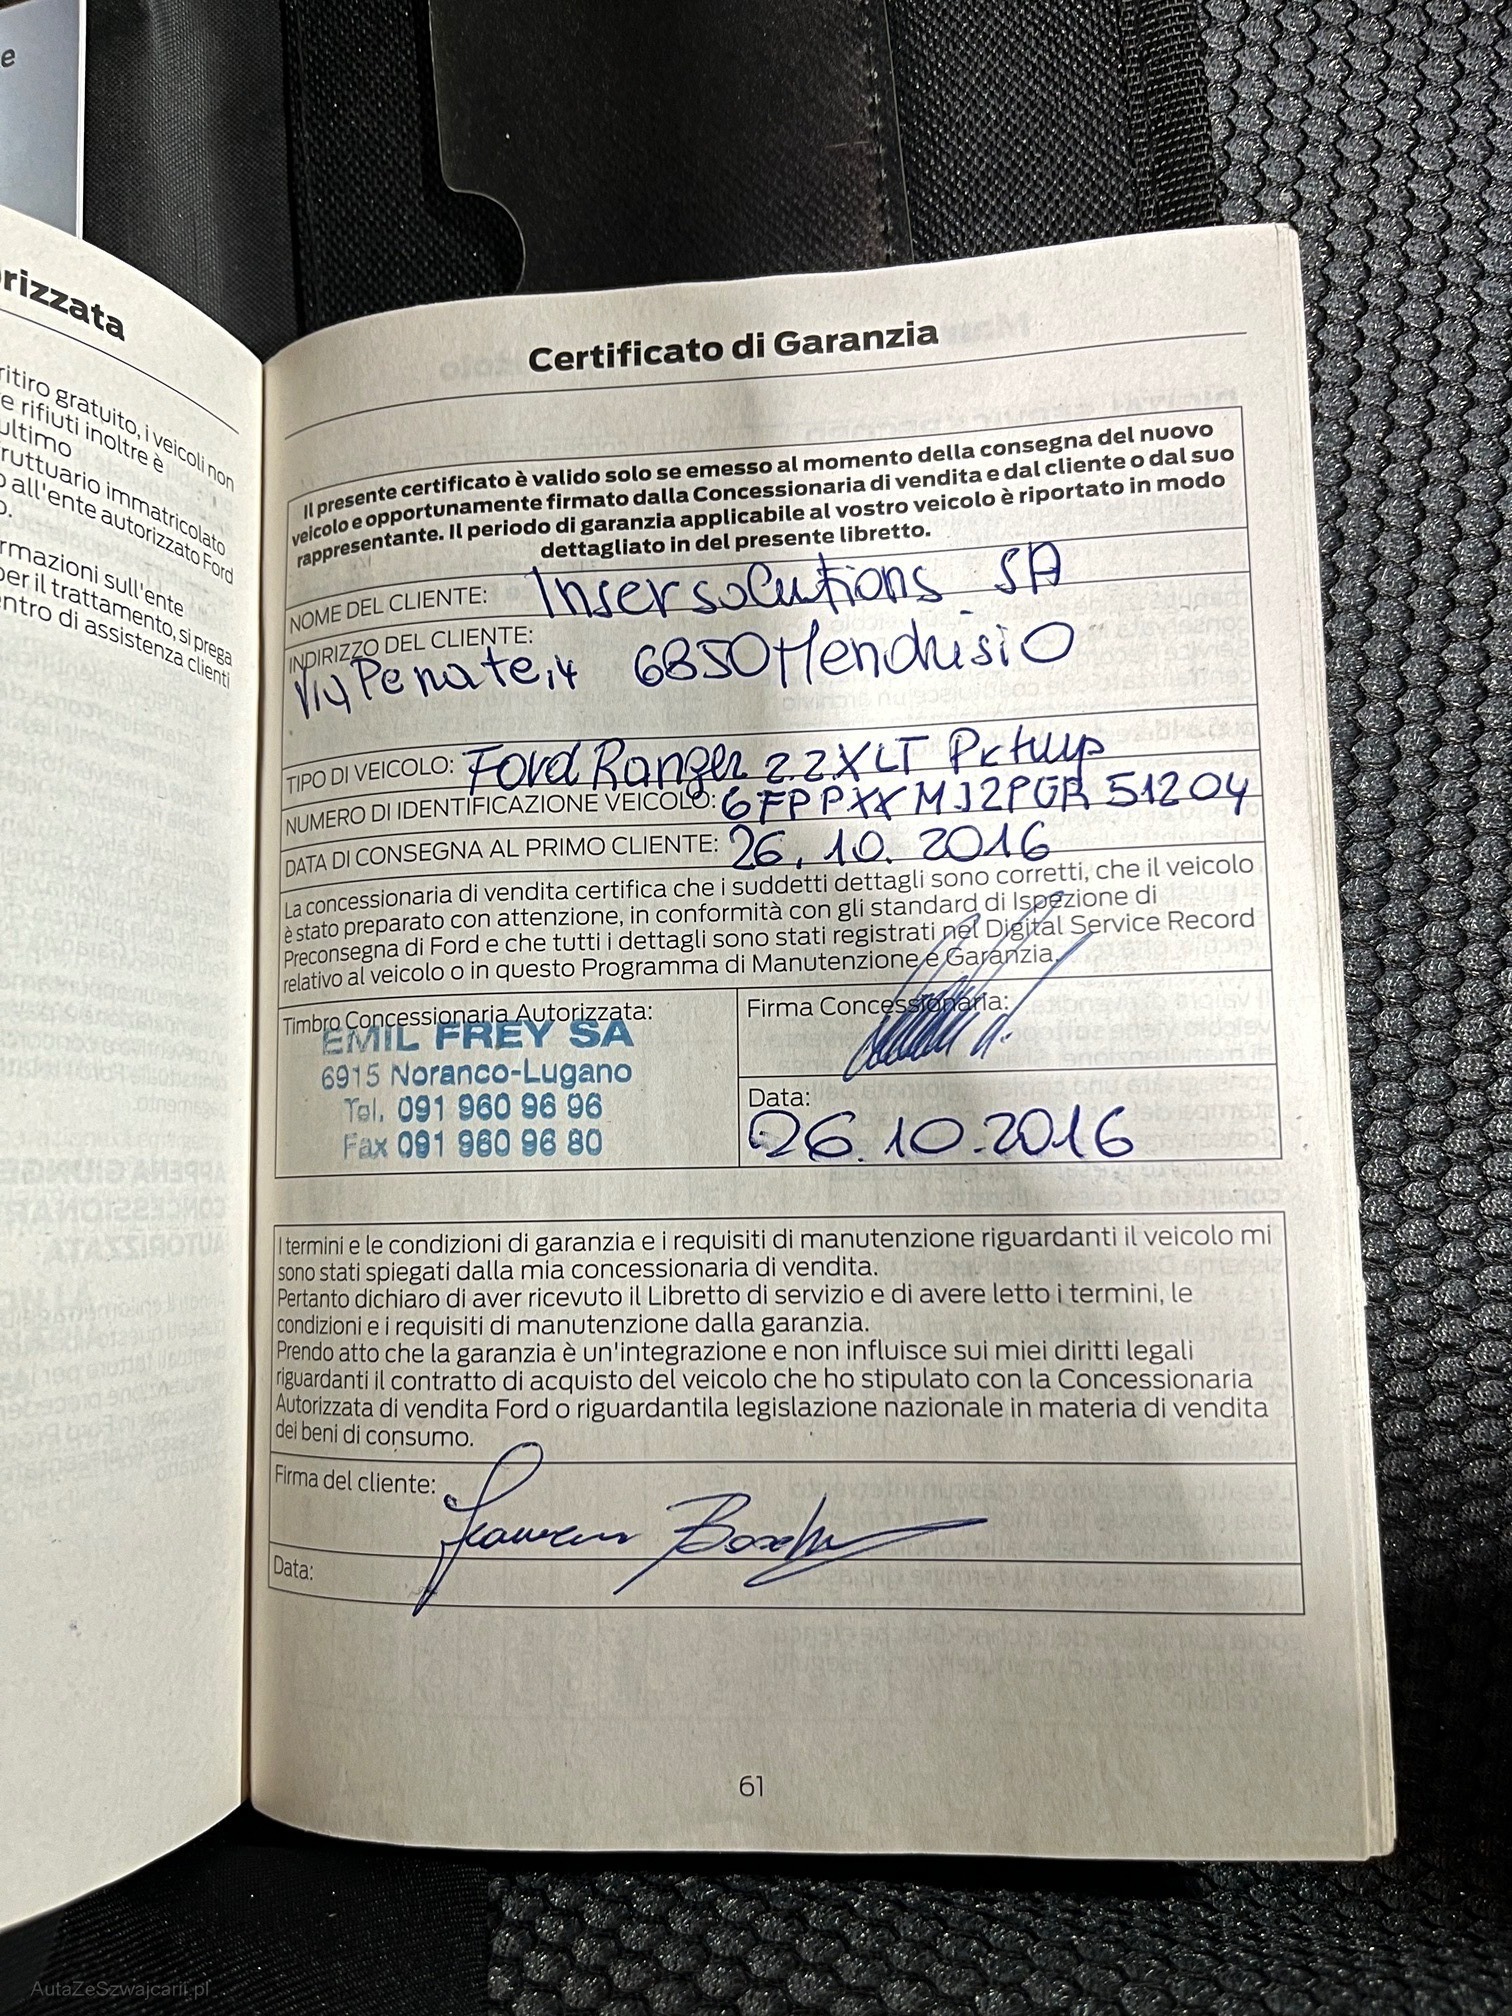 e
orizzata
ritiro gratuito, i veicoli non
e rifiuti inoltre è
ultimo
ruttuario immatricolato
o all'ente autorizzato Ford
o.
rmazioni sull'ente
per il trattamento, si prega
entro di assistenza clienti
Certificato di Garanzia
Il presente certificato è valido solo se emesso al momento della consegna del nuovo
veicolo e opportunamente firmato dalla Concessionaria di vendita e dal cliente o dal suo
rappresentante. Il periodo di garanzia applicabile al vostro veicolo è riportato in modo
dettagliato in del presente libretto.
NOME DEL CLIENTE: Insersolutions SA
INDIRIZZO DEL CLIENTE:
Via Penate, 4 6850 Mendrisio
TIPO DI VEICOLO: Ford Ranger 2.2 XLT Pickup
NUMERO DI IDENTIFICAZIONE VEICOLO: 6FPPXXMJ2PGR51204
DATA DI CONSEGNA AL PRIMO CLIENTE: 26.10.2016
La concessionaria di vendita certifica che i suddetti dettagli sono corretti, che il veicolo
è stato preparato con attenzione, in conformità con gli standard di Ispezione di
Preconsegna di Ford e che tutti i dettagli sono stati registrati nel Digital Service Record
relativo al veicolo o in questo Programma di Manutenzione e Garanzia.
Timbro Concessionaria Autorizzata:
EMIL FREY SA
6915 Noranco-Lugano
Tel. 091 960 96 96
Fax 091 960 96 80
Firma Concessionaria:
Data:
26.10.2016
I termini e le condizioni di garanzia e i requisiti di manutenzione riguardanti il veicolo mi
sono stati spiegati dalla mia concessionaria di vendita.
Pertanto dichiaro di aver ricevuto il Libretto di servizio e di avere letto i termini, le
condizioni e i requisiti di manutenzione dalla garanzia.
Prendo atto che la garanzia è un'integrazione e non influisce sui miei diritti legali
riguardanti il contratto di acquisto del veicolo che ho stipulato con la Concessionaria
Autorizzata di vendita Ford o riguardantila legislazione nazionale in materia di vendita
dei beni di consumo.
Firma del cliente:
Data:
61
AutaZeSzwajcarii.pl